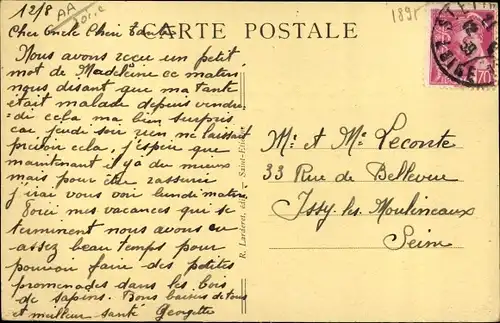 12/8
AA
Loire
1895
CARTE POSTALE
Cher Oncle Chère Tante
Nous avons reçu un petit
mot de Madeleine ce matin
nous disant que ma tante
était malade depuis vendre-
di cela ma bien surpris
car jeudi soir rien ne laissait
prévoir cela, j'espère que
maintenant il y a du mieux
mais pour être rassurée
j'irai vous voir lundi matin
Voici nes vacances qui se
terminent nous avons eu
assez beau temps pour
pouvoir faire des petites
promenades dans les bois
de sapins. Bons baisers de tous
et meilleur santé Georgette
R. Larderet, édit. - Saint-Etienne
70
Mr et Me Leconte
33 Rue de Bellevue
Issy les Moulineaux
Seine